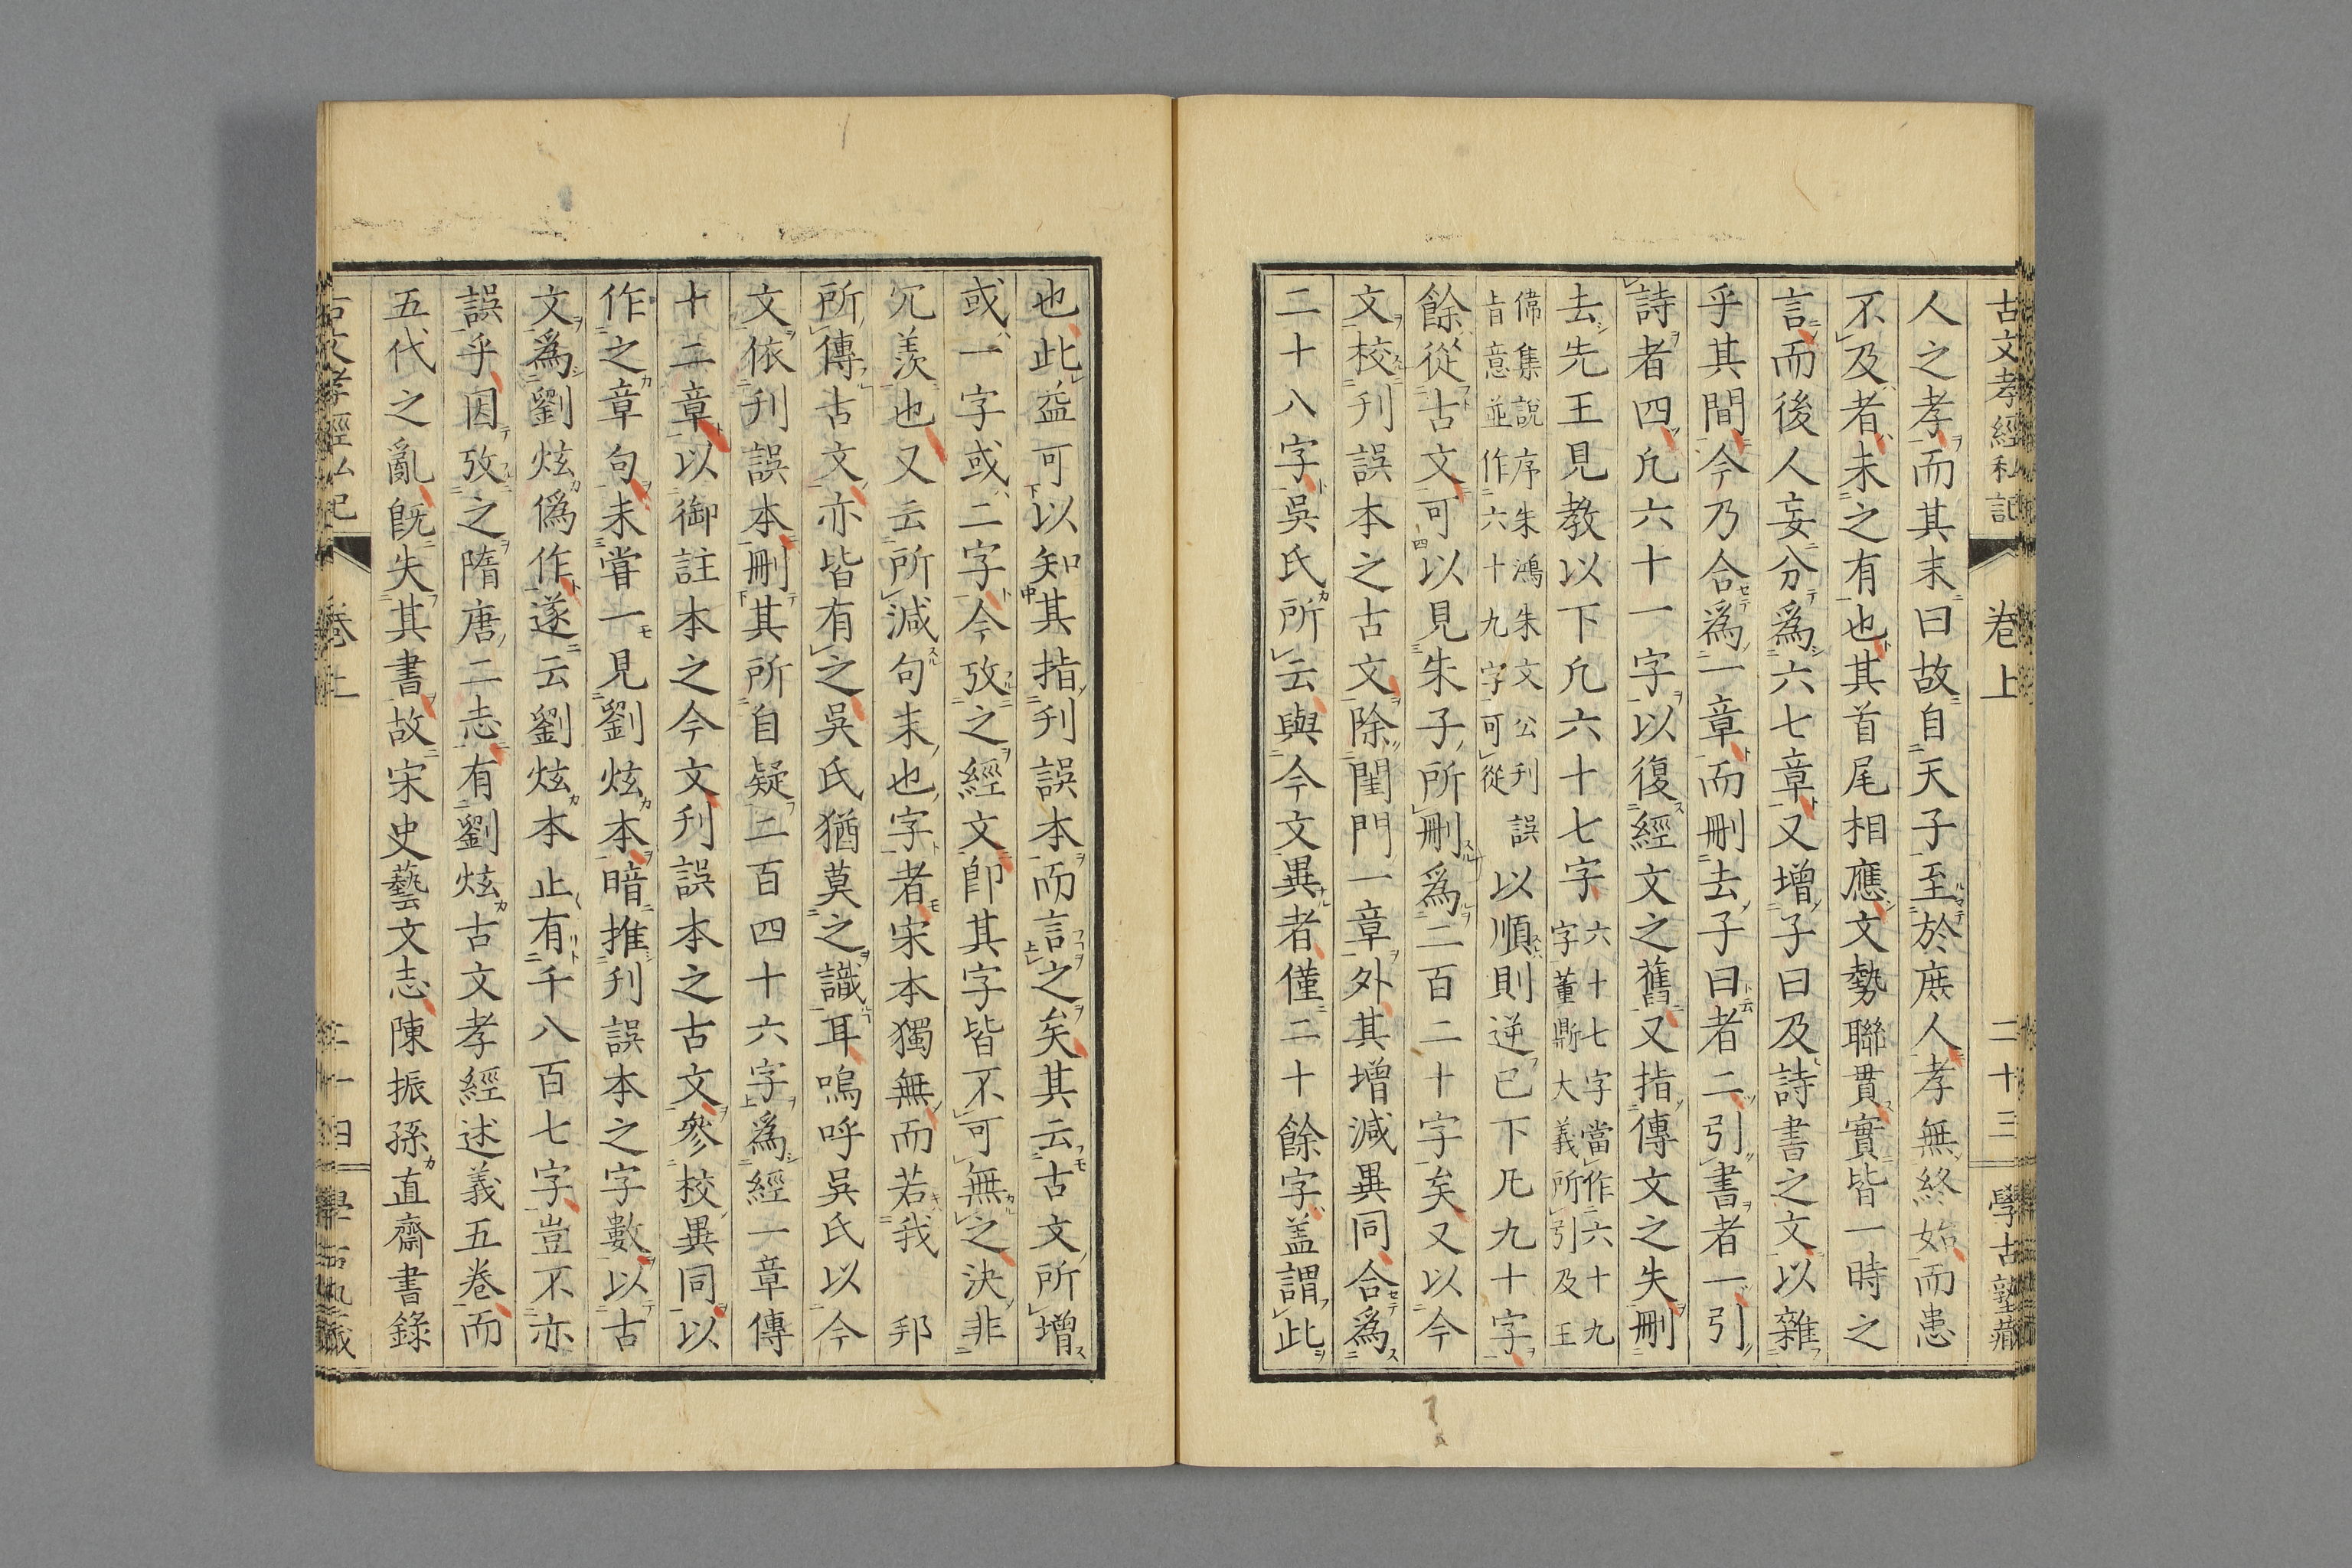 古文孝經私記 卷上 二十三 學古塾藏
人之孝而其末曰故自天子至於庶人孝無終始而患
不及者未之有也其首尾相應文勢聯貫實皆一時之
言而後人妄分爲六七章又增子曰及詩書之文以雜
乎其間今乃合爲一章而刪去子曰者二引書者一引
詩者四凡六十一字以復經文之舊又指傳文之失刪
去先王見教以下凡六十七字六十七字當作六十九字董鼎大義所引及王
偁集說序朱鴻朱文公刊誤旨意並作六十九字可從以順則逆已下凡九十字
餘從古文可以見朱子所刪爲二百二十字矣又以今
文校刊誤本之古文除閨門一章外其增減異同合爲
二十八字吳氏所云與今文異者僅二十餘字盖謂此
也此益可以知其指刊誤本而言之矣其云古文所增
或一字或二字今攷之經文卽其字皆不可無之決非
冗羨也又云所減句末也字者宋本獨無而若我 邦
所傳古文亦皆有之吳氏猶莫之識耳嗚呼吳氏以今
文依刊誤本刪其所自疑二百四十六字爲經一章傳
十二章以御註本之今文刊誤本之古文參校異同以
作之章句未嘗一見劉炫本暗推刊誤本之字數以古
文爲劉炫僞作遂云劉炫本止有千八百七字豈不亦
誤乎因攷之隋唐二志有劉炫古文孝經述義五卷而
五代之亂旣失其書故宋史藝文志陳振孫直齋書錄